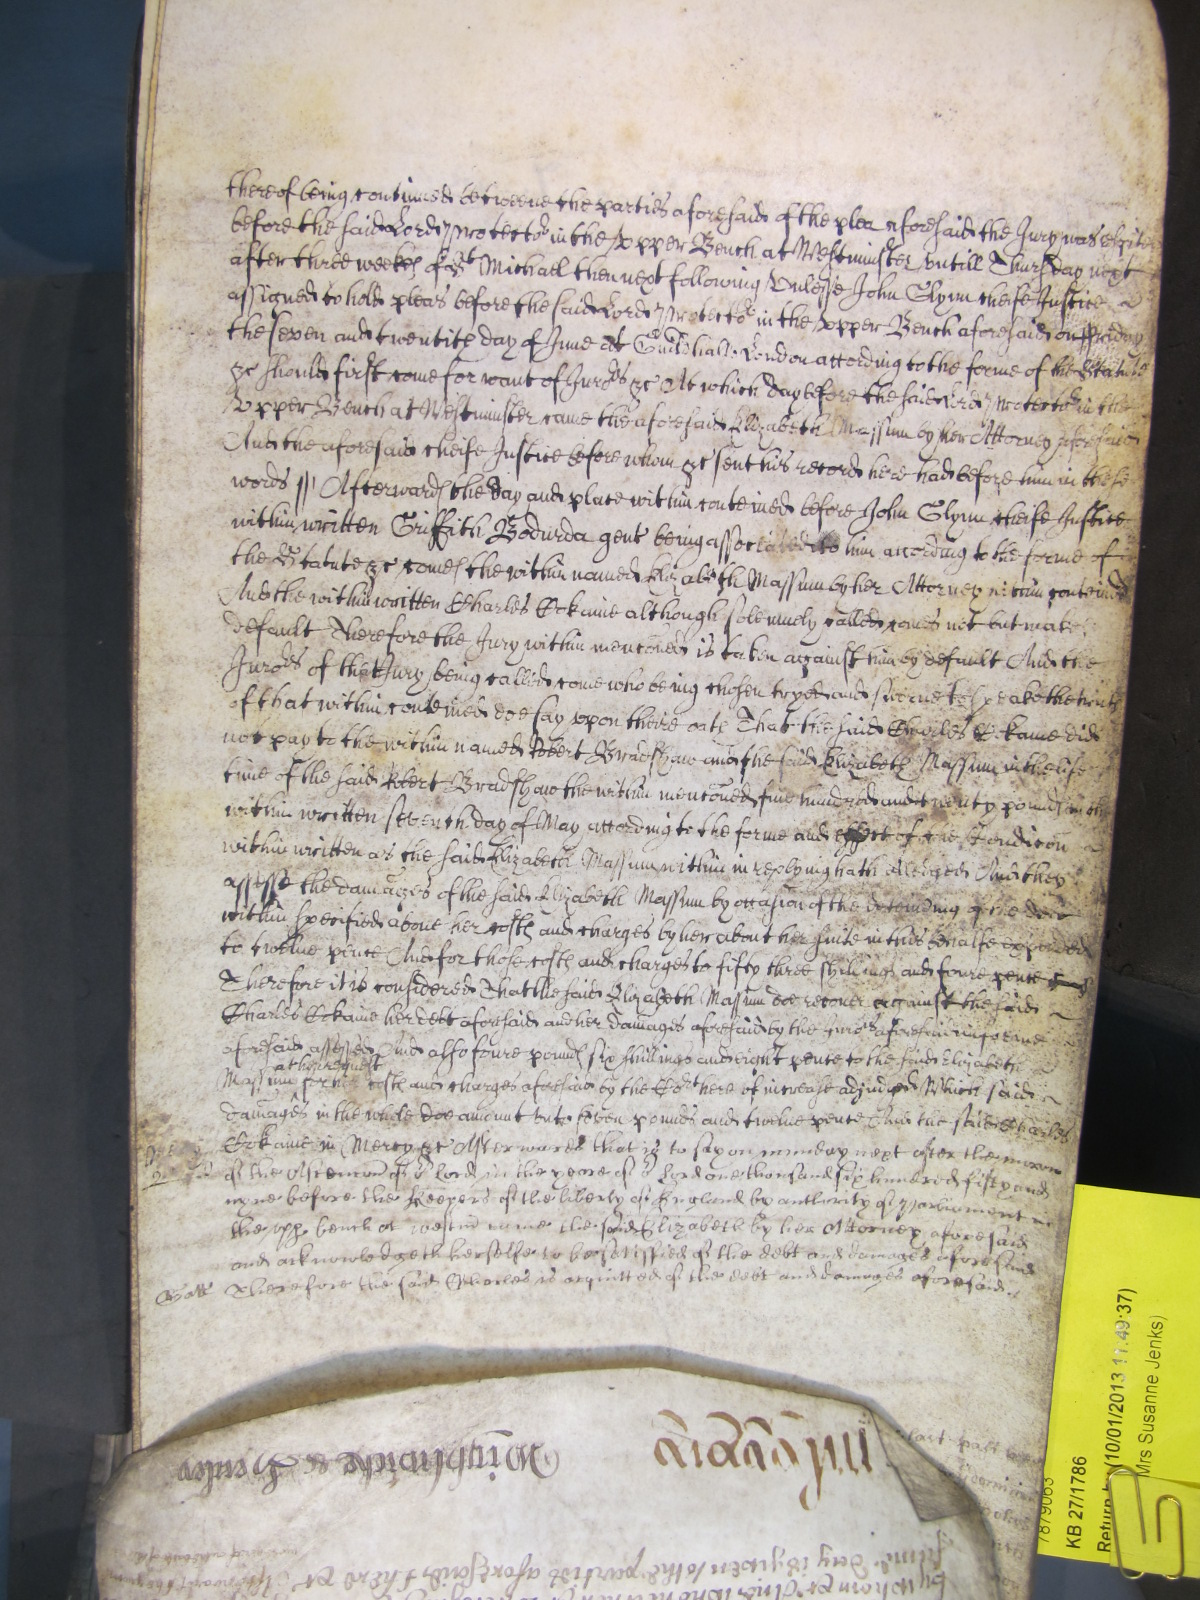 thereof being continued betweene the parties aforesaid of the plea aforesaid the Jury was respited
before the said Lord Protector in the upper Bench at Westminster untill Thursday next
after three weekes of St Michaell then next following Unlesse John Glynn cheife Justice
assigned to hold pleas before the said Lord Protector in the upper Bench aforesaid on Fryday
the seven and twentith day of June at Guildhall London according to the forme of the Statute
&c should first come for want of Jurors &c At which day before the said Lord Protector in the
Upper Bench at Westminster came the aforesaid Elizabeth Massum by her Attorney aforesaid
And the aforesaid cheife Justice before whom &c sent his record here had before him in these
words // Afterwards the day and place within conteined before John Glynn cheife Justice
within written Griffith Bodurda gent being associated to him according to the forme of
the Statute &c comes the within named Elizabeth Massum by her Attorney within conteined
And the within written Charles Cokaine although solemnely called comes not but makes
default Therefore the Jury within menconed is taken against him by default And the
Jurors of that Jury being called come who being chosen tryed and sworne to speake the truth
of that within conteined doe say upon theire oath That the said Charles Cokaine did
not pay to the within named Robert Bradshaw and the said Elizabeth Massum in the life
time of the said Robert Bradshaw the within menconed five hundred and twenty pounds on the
within written seventh day of May according to the forme and effect of the Condicon
within written as the said Elizabeth Massum within in replying hath alledged And they
assesse the damages of the said Elizabeth Massum by occasion of the deteining of the debt
within specified above her costs and charges by her about her suite in this behalfe expended
to twelve pence And for those costs and charges to fifty three shillings and foure pence
Therefore it is considered That the said Elizabeth Massum doe recover against the said
Charles Cokaine her debt aforesaid and her damages aforesaid by the Jurors aforesaid in forme
aforesaid assessed And also foure pounds six shillings and eight pence to the said Elizabeth
at her request
Massum for her costs and charges aforesaid by the Court here of increase adjudged Which said
damages in the whole doe amount unto seven pounds and twelve pence And the said Charles
Cokaine in Mercy &c Afterwards that is to say on munday next after the morrow
of the Ascencon of or Lord in the yeare of or Lord one thousand six hundred fifty and
nyne before the Keepers of the liberty of England by authority of Parliament in
the upp bench at Westmr came the said Elizabeth by her Attorney aforesaid
and acknowledgeth herselfe to be satisfied of the debt and damages aforesaid
Therefore the said Charles is acquitted of the debt and damages aforesaid
Wightwicke & Henley
by whom &c
same day is given to the parties aforesaid there &c
7879063
KB 27/1786
Return by (10/01/2013 11:49:37)
Mrs Susanne Jenks)